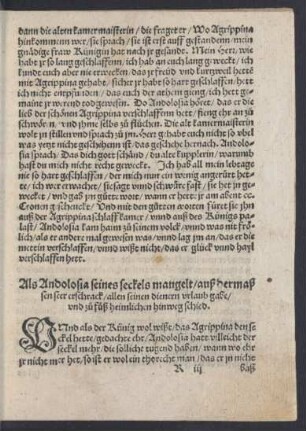 dann die alten kamermaisterin / die fraget er / Wo Agrippina
hinkommen wer / sie sprach / sie ist erst auff gestanden / mein
gnädige fraw Künigin hat nach jr gesandt. Mein Herr / wie
habt jr so lang geschlaffen / ich hab an euch lang geweckt / ich
kunde euch aber nie erwecken / das jr freüd vnd kurtzweil hette
mit Agrippina gehabt / sicher jr habe so hart geschlaffen / hett
ich nicht entpfunden / das euch der athem gieng / ich hett ge
maint jr werend tod gewesen. Do Andolosia höret / das er die
lieb der schönen Agrippina verschlaffen hett / fieng er an zů
schwören / vnd jhme selbs zů flůchen. Die alt kamermaisterin
wolt jn stillen vnd sprach zů jm / Herr gehabt euch nicht so übel
was yetz nicht geschehen ist / das geschehe hernach. Andolo-
sia sprach / Das dich gott schänd / du alte kupplerin / warumb
hast du mich nicht recht geweckt. Ich hab all mein lebtage
nie so hart geschlaffen / der mich nur ein wenig angerürt het-
te / ich wer erwachet / sie sagt vnnd schwůre fast / sie het jn ge
wecket / vnd gab jm gůtte wort / wann er hett jr am abent cc.
Cronen geschenckt / Vnd mit den gůtten worten füret sie jhn
auß der Agrippina schlaffkamer / vnnd auß des Künigs pa-
last / Andolosia kam hann zů seinem volck / vnnd was nit frö-
lich / als er ander mal gewesen was / vnnd lag jm an / das er die
nietten verschlaffen / vnnd wißte nicht / das er glück vnnd hayl
verschlaffen hett.
Als Andolosia seines seckels mangelt / auß dermaß
sen seer erschrack / allen seinen dienern vrlaub gabe /
vnd zů fůß heimlichen hinweg schied.
VNnd als der Künig wol wißte / das Agrippina den se
ckel hette / gedachte er / Andolosia hatt villeicht der
seckel mehr / die solliche tugend haben / wann wo er
jr nicht mer het / so ist er wol ein thorecht man / das er jn nicht
R iij baß